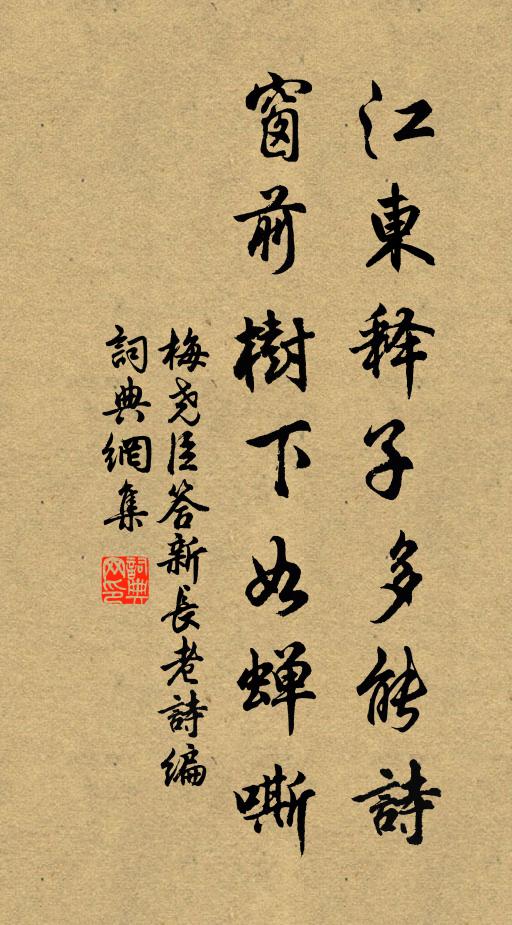 江東释子多能詩
窗前樹下如蝉嘶
梅尧臣答新長老詩编
詞典網集
詞典网印